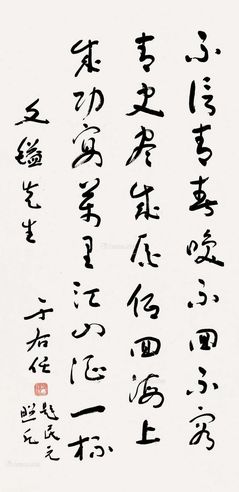 不信青春喚不回不容
青史盡成灰低回海上
成功宴萬里江山酒一杯
題民元
照片
文鎰先生
于右任